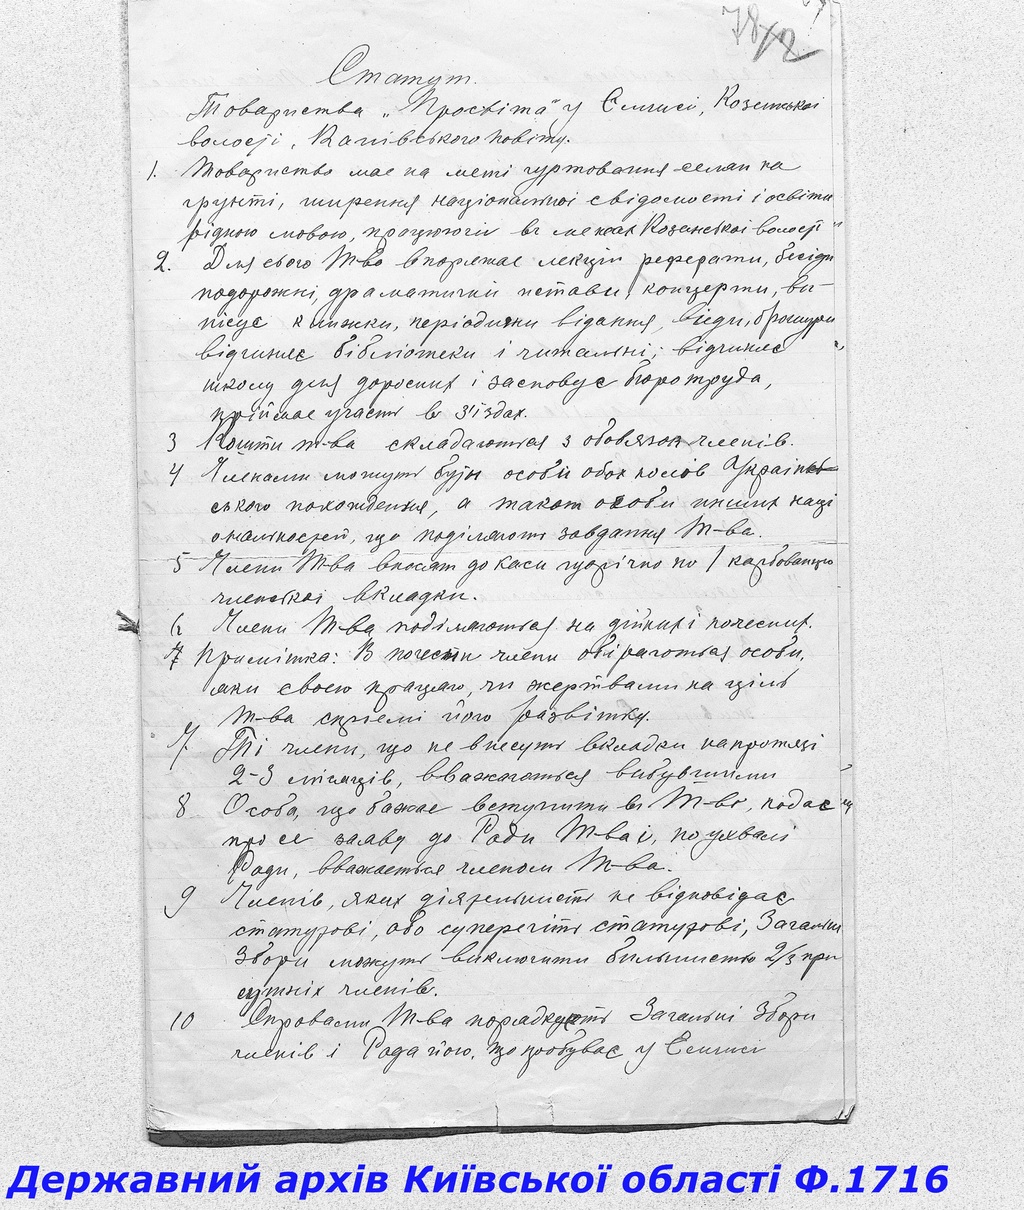 78/2
Статут.
Товариства „Просвіта" у Емчисі, Козинської
волості, Канівського повіту.
1. Товариство має на меті гуртовання селян на
грунті, ширення національної свідомості і освіти
рідною мовою, працюючи в межах Козинської волості
2. Для сього Т-во впоряжає лекції реферати, бесіди
подорожні, драматичні вистави, концерти, ви-
пісує книжки, періодични відання, брошури
відчиняє бібліотеки і читальні; відчиняє
школу для дорослих і засновує бюро труда,
приймає участь в з'їздах.
3 Кошти т-ва складаються з обов'язок членів.
4 Членами можуть бути особи обох полов Україн
ського походження, а також особи инших наці
ональностей, що поділяють завдання Т-ва.
5 Члени Т-ва вносят до каси щорічно по 1 карбованцю
членскої вкладки.
6 Члени Т-ва поділяються на дійних і почесних.
7 Примітка: В почесни члени обіраються особи,
яки своєю працею, чи жертвами на ціль
Т-ва сприяли його развітку.
7. Ті члени, що не внесуть вкладки напротязі
2-3 місяців, вважаються вибувшими
8 Особа, що бажає вступити в Т-во, подає
про се заяву до Ради Т-ва і, по ухвалі
Ради, вважається членом Т-ва.
9 Членів, яких діяльність не відповідає
статутові, або суперечіть статутові, Загальни
Збори можуть виключити більшистю 2/3 при
сутніх членів.
10 Справами Т-ва порядкують Загальні Збори
членів і Рада його, що пробуває у Емчисі
Державний архів Київської області Ф.1716